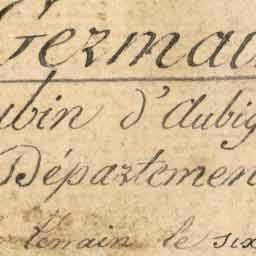 Germai
ubin d'aubig
Départemen
terrain le six